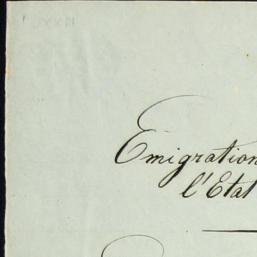 Emigration
l'Etat